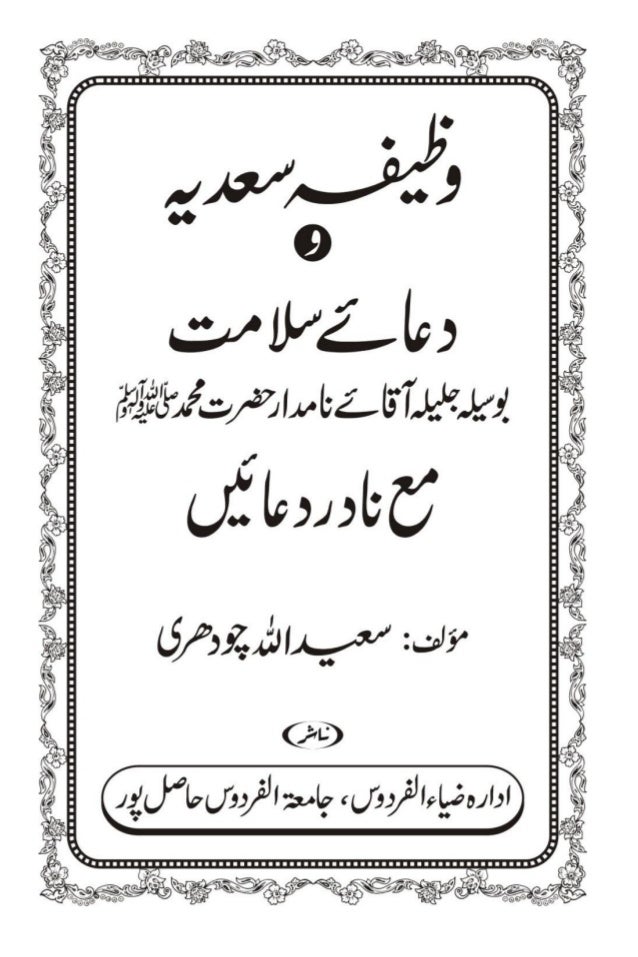 وظیفہ سعدیہ
و
دعائے سلامت
بوسیلہ جلیلہ آقائے نامدار حضرت محمد صلی اللہ علیہ وآلہ وسلم
مع نادر دعائیں
مؤلف: سعید اللہ چودھری
ناشر
ادارہ ضیاء الفردوس، جامعۃ الفردوس حاصل پور